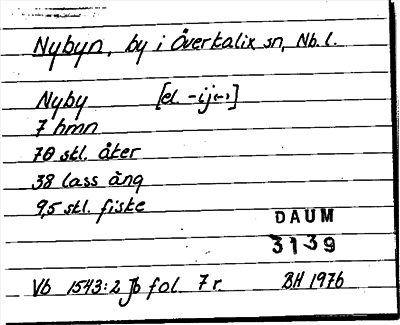 Nybyn, by i Överkalix sn, Nb. l.
Nyby [el. -ij-]
7 hmn
70 stl. åker
38 lass äng
9,5 stl. fiske
DAUM
3139
Vb 1543:2 Jb fol. 7 r. BH 1976